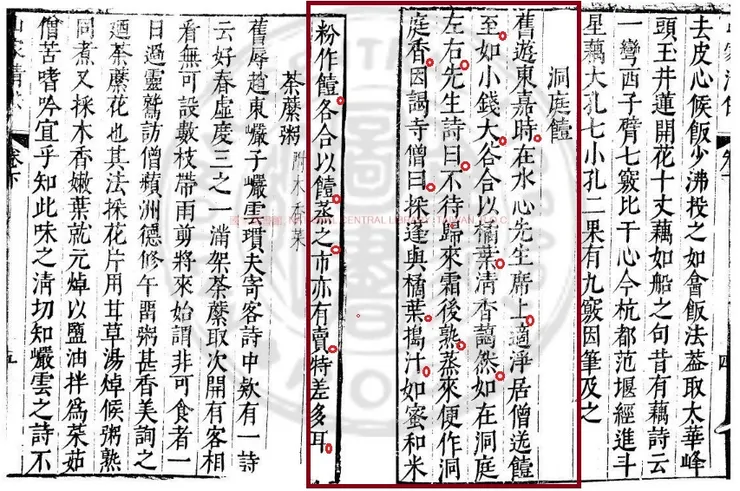 去皮心候飯少沸投之如會飯法蓋取大華峰
頭玉井蓮開花十丈藕如船之句昔有藕詩云
一彎西子臂七竅比干心今杭都范堰經進斗
星藕大孔七小孔二果有九竅因筆及之
洞庭饐
舊遊東嘉時在水心先生席上適淨居僧送饐
至如小錢大谷合以橘葉清香藹然如在洞庭
左右先生詩曰不待歸來霜後熟蒸來便作洞
庭香因謁寺僧曰採蓬與橘葉搗汁如蜜和米
粉作饐各合以饐蒸之市亦有賣特差多耳
荼蘼粥 附木香菜
舊辱趙東巗子巗雲瓚夫寄客詩中款有一詩
云好春虛度三之一滿架荼蘼取次開有客相
看無可設數枝帶雨剪將來始謂非可食者一
日過靈鷲訪僧蘋洲德修午留粥甚香美詢之
廼荼蘼花也其法採花片用甘草湯焯候粥熟
同煮又採木香嫩葉就元焯以鹽油拌爲菜茹
僧苦嗜吟宜乎知此味之清切知巗雲之詩不
五
四